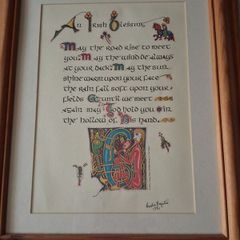 An Irish Blessing
May the road rise to meet
you May the wind be always
at your back May the sun
shine warm upon your face
the rain fall soft upon your
fields & until we meet
again may God hold you in
the hollow of His hand.